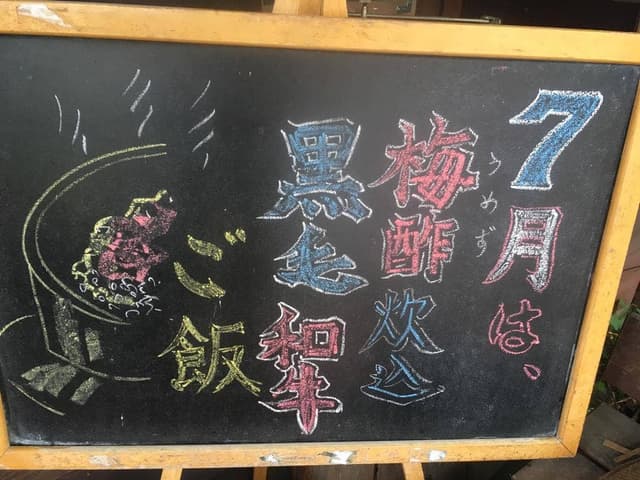 7月は、
うめず
梅酢炊込
黒毛和牛
ご飯